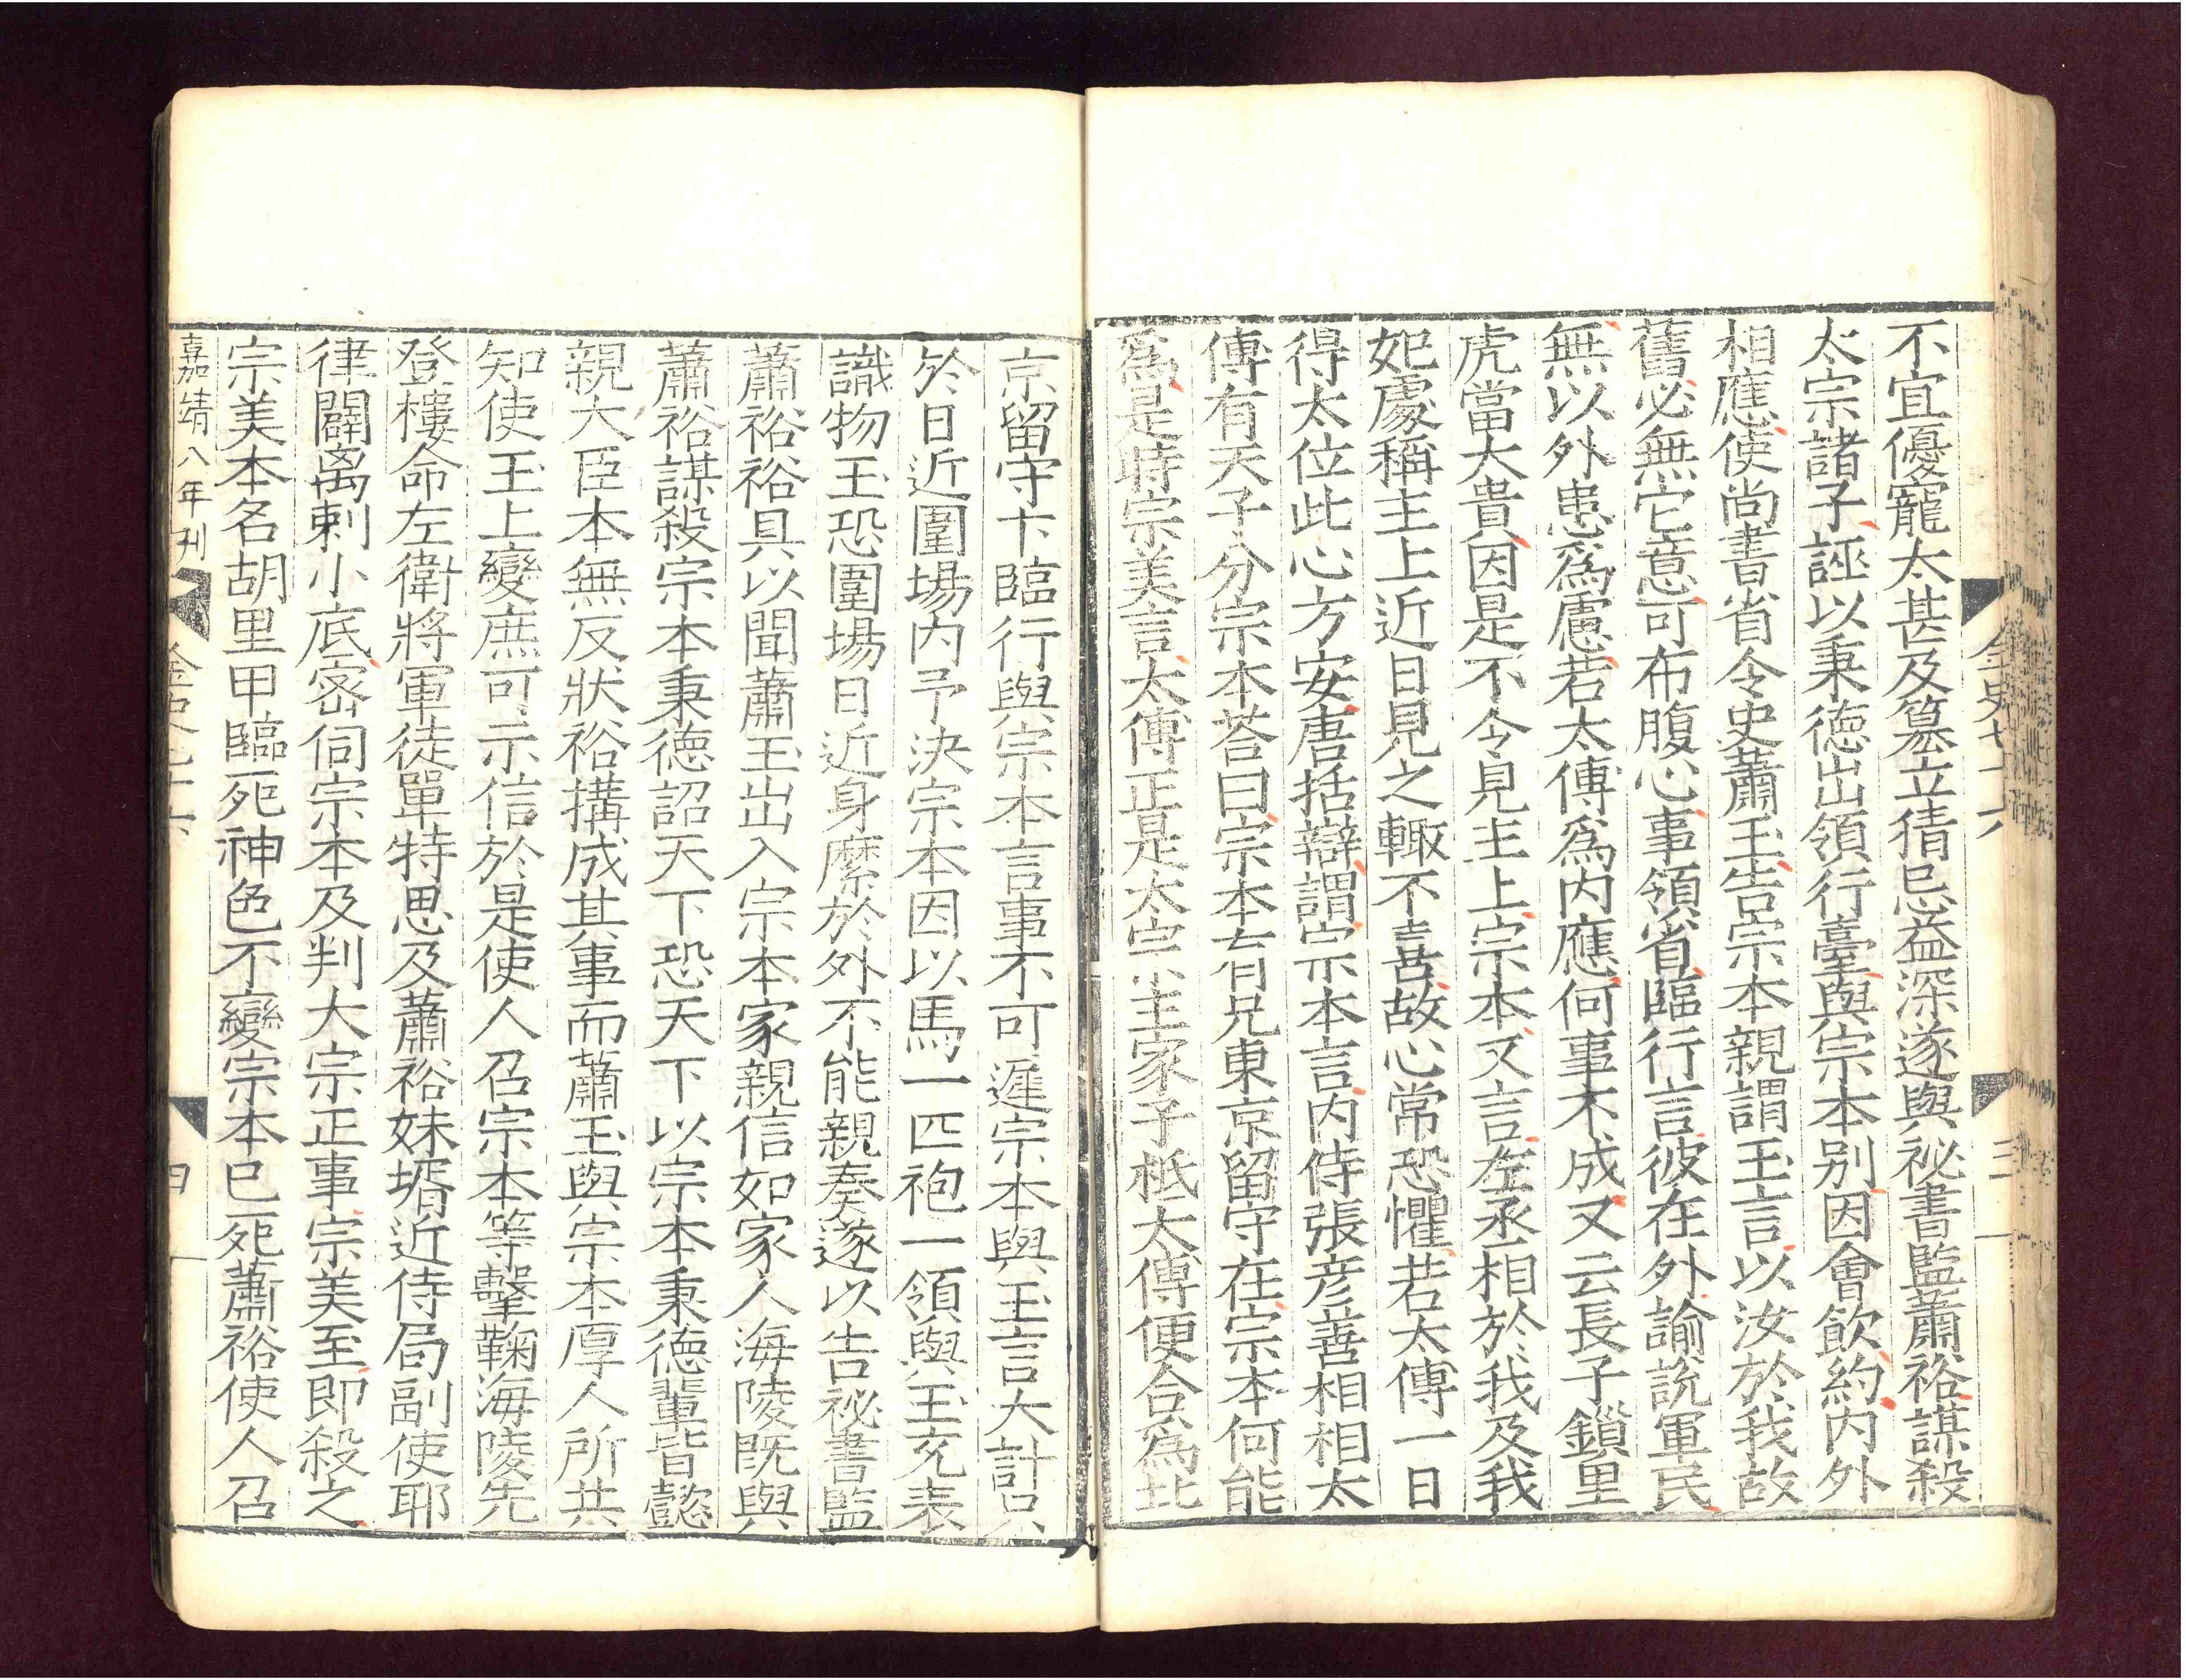 不宜優寵太甚及篡立猜忌益深遂與祕書監蕭裕謀殺
太宗諸子誣以秉德出領行臺與宗本別因會飲約內外
相應使尚書省令史蕭玉告宗本親謂玉言以汝於我故
舊必無它意可布腹心事領省臨行言彼在外諭說軍民
無以外患爲慮若太傅爲內應何事不成又云長子鎖里
虎當大貴因是不令見主上宗本又言左丞相於我及我
妃處稱主上近日見之輙不喜故心常恐懼若太傅一日
得太位此心方安唐括辯謂宗本言內侍張彥善相相太
傅有天子分宗本荅曰宗本有兄東京留守在宗本何能
爲是時宗美言太傅正是太宗主家子秪太傅便合爲北
京留守卞臨行與宗本言事不可遲宗本與玉言大計只
於日近圍場內予決宗本因以馬一匹袍一領與玉充表
識物玉恐圍場日近身縻於外不能親奏遂以告祕書監
蕭裕裕具以聞蕭玉出入宗本家親信如家人海陵既與
蕭裕謀殺宗本秉德詔天下恐天下以宗本秉德輩皆懿
親大臣本無反狀裕搆成其事而蕭玉與宗本厚人所共
知使玉上變庶可示信於是使人召宗本等擊鞠海陵先
登樓命左衛將軍徒單特思及蕭裕妹壻近侍局副使耶
律闢离剌小底密伺宗本及判大宗正事宗美至即殺之
宗美本名胡里甲臨死神色不變宗本已死蕭裕使人召
嘉靖八年刊